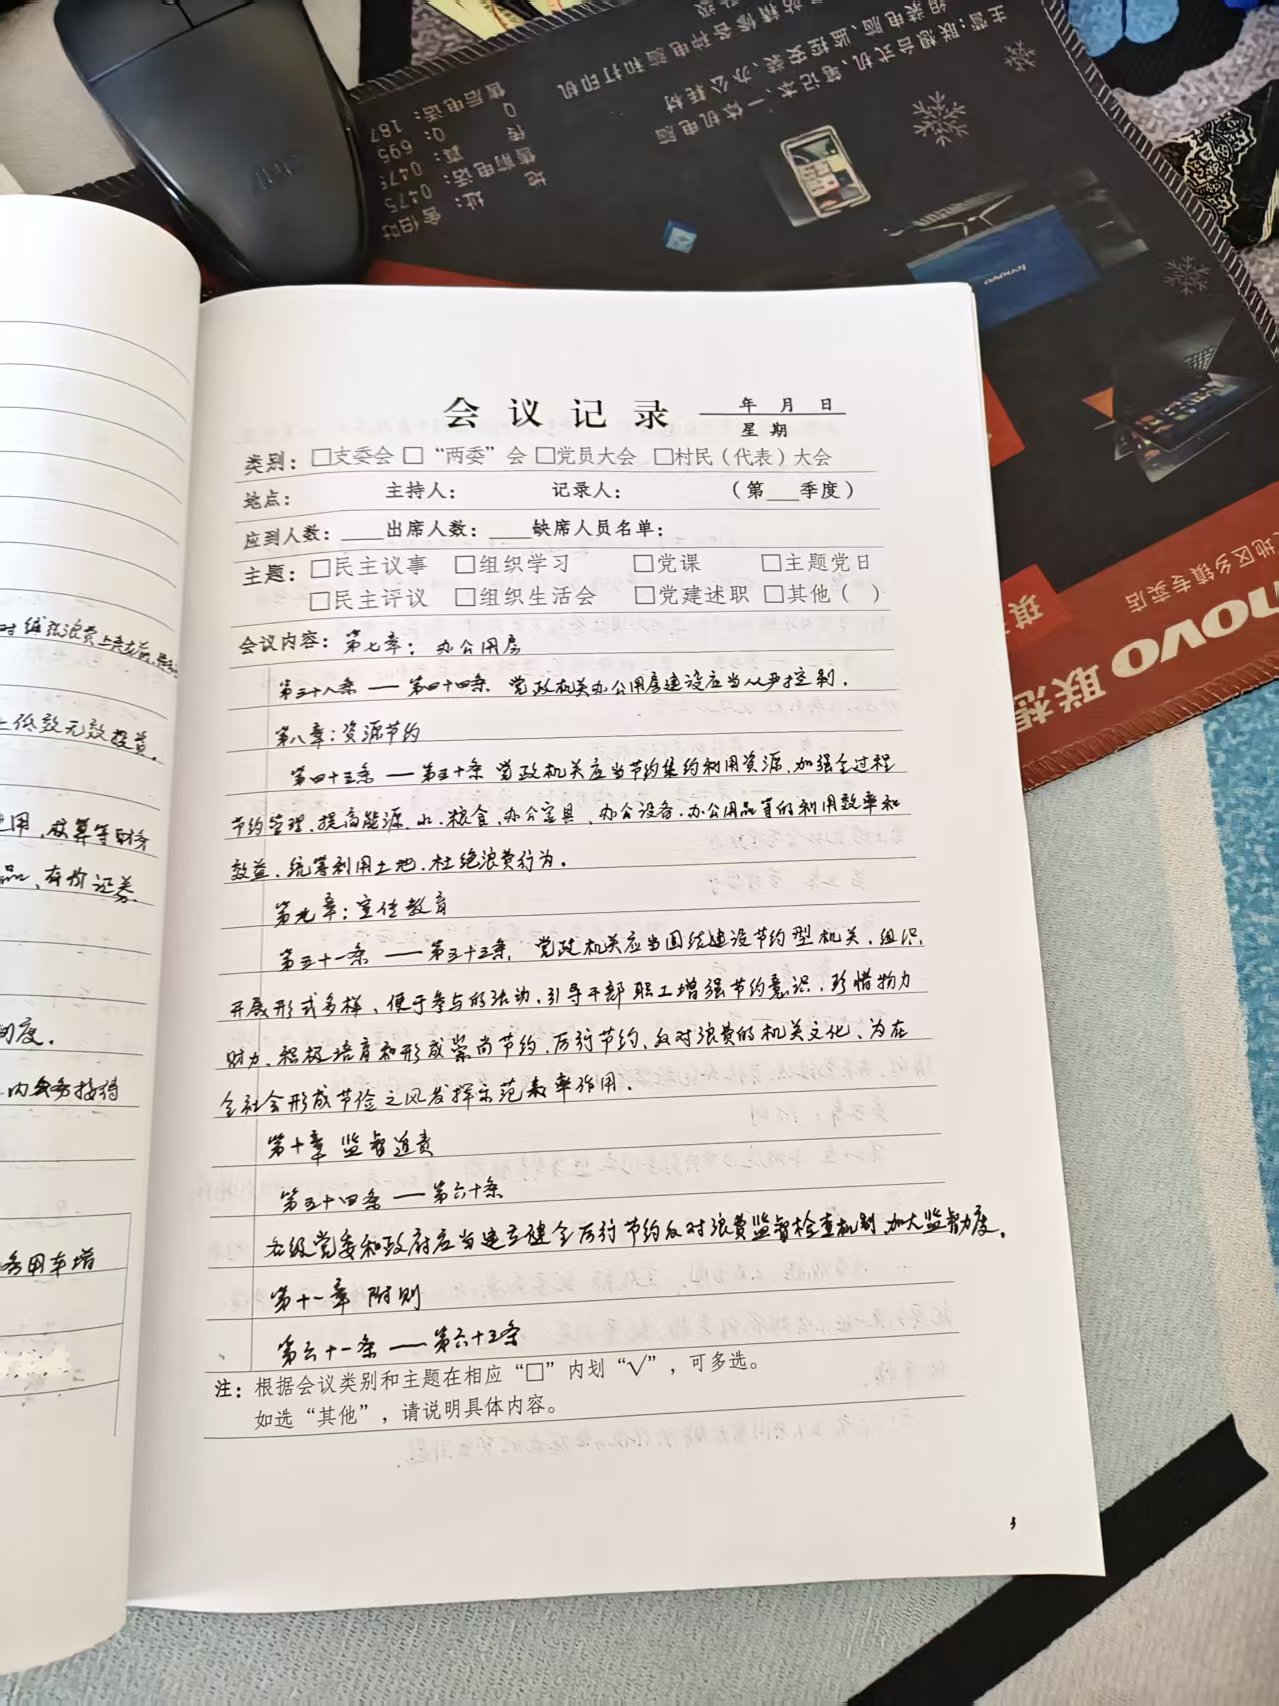 会议记录
年 月 日
星期
类别：□支委会 □“两委”会 □党员大会 □村民（代表）大会
地点： 主持人： 记录人： （第___季度）
应到人数：____出席人数：____缺席人员名单：
主题：□民主议事 □组织学习 □党课 □主题党日
□民主评议 □组织生活会 □党建述职 □其他（ ）
会议内容：第七章：办公用房
第三十八条 — 第四十四条 党政机关办公用房建设应当从严控制.
第八章：资源节约
第四十五条 — 第五十条 党政机关应当节约集约利用资源、加强全过程
节约管理、提高能源、水、粮食、办公家具、办公设备、办公用品等的利用效率和
效益、统筹利用土地、杜绝浪费行为.
第九章：宣传教育
第五十一条 — 第五十三条, 党政机关应当围绕建设节约型机关、组织
开展形式多样、便于参与的活动、引导干部职工增强节约意识、珍惜物力
财力、积极培育和形成崇尚节约、厉行节约、反对浪费的机关文化、为在
全社会形成节俭之风发挥示范表率作用.
第十章 监督追责
第五十四条 — 第六十条
各级党委和政府应当建立健全厉行节约反对浪费监督检查机制、加大监督力度.
第十一章 附则
第六十一条 — 第六十三条
注：根据会议类别和主题在相应“□”内划“√”，可多选。
如选“其他”，请说明具体内容。
3
上低效无效投资.
核算等财务
品、有价证券
制度.
内公务接待
务用车增
主营：联想台式机、笔记本、一体机电脑
组装电脑、监控安装、办公耗材
售前电话：0475
传 真：0475
Q Q：695
售后电话：187
lenovo
novo 联想
地区乡镇专卖店